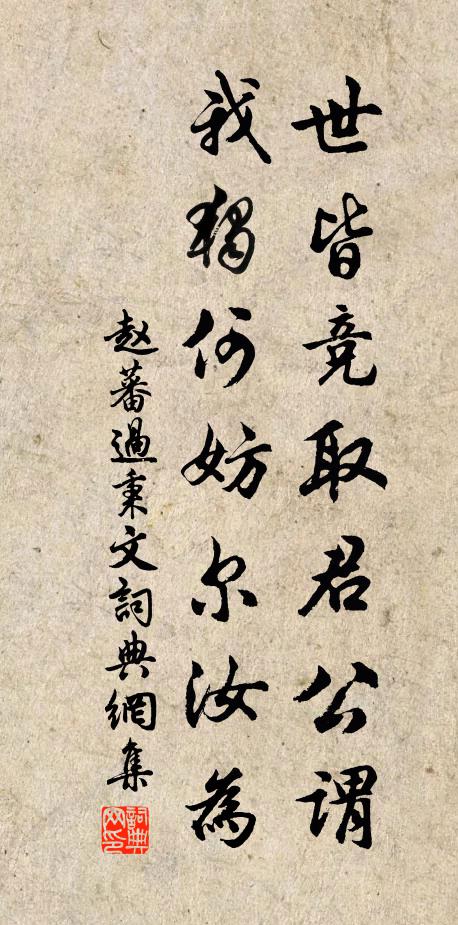 世皆竞取君公谓
我獨何妨尔汝為
赵蕃過秉文詞典網集
詞典網印